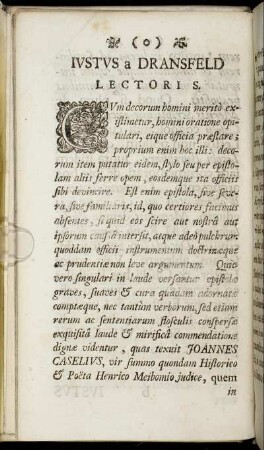 (o)
IVSTVS a DRANSFELD
LECTORI S.
CVm decorum homini meritò ex-
istimetur, homini oratione opi-
tulari, eique officia præstare;
proprium enim hoc illi: deco-
rum item putatur eidem, stylo seu per episto-
lam aliis ferre opem, eosdemque ita officiis
sibi devincire. Est enim epistola, sive seve-
ra, sive familiaris, id, quo certiores facimus
absentes, si quid eos scire aut nostrâ aut
ipsorum causâ intersit, atque adeò pulchrum
quoddam officii instrumentum doctrinæque
ac prudentiæ non leve argumentum. Quò
verò singulari in laude versantur epistolæ
graves, suaves & curâ quâdam adornatæ
comptæque, nec tantùm verborum, sed etiam
rerum ac sententiarum flosculis conspersæ
exquisitâ laude & mirificâ commendatione
dignæ videntur, quas texuit JOANNES
CASELIVS, vir summo quondam Historico
& Poëta Henrico Meibomio judice, quem
in